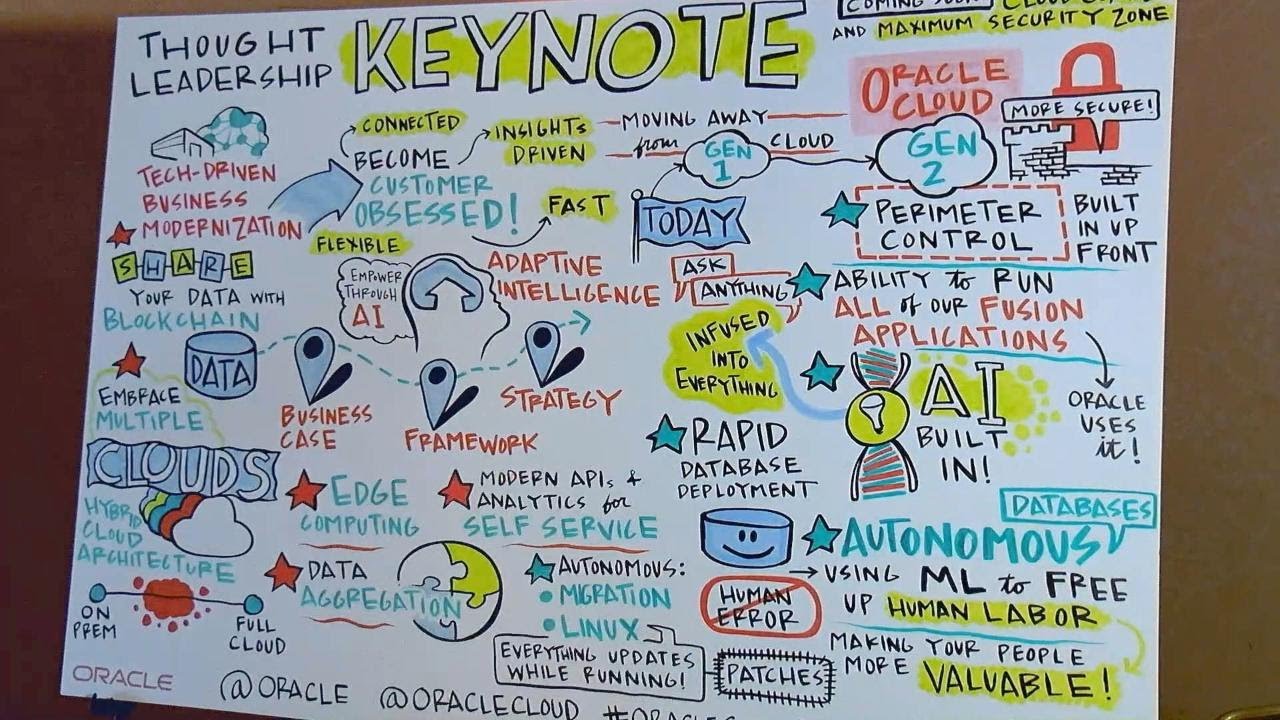 THOUGHT
LEADERSHIP
KEYNOTE
COMING SOON
AND MAXIMUM SECURITY ZONE
TECH-DRIVEN
BUSINESS
MODERNIZATION
CONNECTED
BECOME
CUSTOMER
OBSESSED!
INSIGHTS
DRIVEN
FLEXIBLE
FAST
MOVING AWAY
from
GEN
1
CLOUD
ORACLE
CLOUD
GEN
2
MORE SECURE!
TODAY
PERIMETER
CONTROL
BUILT
IN UP
FRONT
SHARE
YOUR DATA WITH
BLOCKCHAIN
DATA
EMPOWER
THROUGH
AI
ADAPTIVE
INTELLIGENCE
ASK
ANYTHING
ABILITY to RUN
ALL of our FUSION
APPLICATIONS
ORACLE
USES
it!
BUSINESS
CASE
FRAMEWORK
STRATEGY
INFUSED
INTO
EVERYTHING
AI
BUILT
IN!
EMBRACE
MULTIPLE
CLOUDS
HYBRID
CLOUD
ARCHITECTURE
ON
PREM
FULL
CLOUD
EDGE
COMPUTING
MODERN APIs &
ANALYTICS for
SELF SERVICE
DATA
AGGREGATION
RAPID
DATABASE
DEPLOYMENT
DATABASES
AUTONOMOUS
USING ML to FREE
UP HUMAN LABOR
HUMAN
ERROR
MAKING YOUR PEOPLE
MORE VALUABLE!
AUTONOMOUS:
• MIGRATION
• LINUX
EVERYTHING UPDATES
WHILE RUNNING!
PATCHES
ORACLE
@ORACLE @ORACLECLOUD